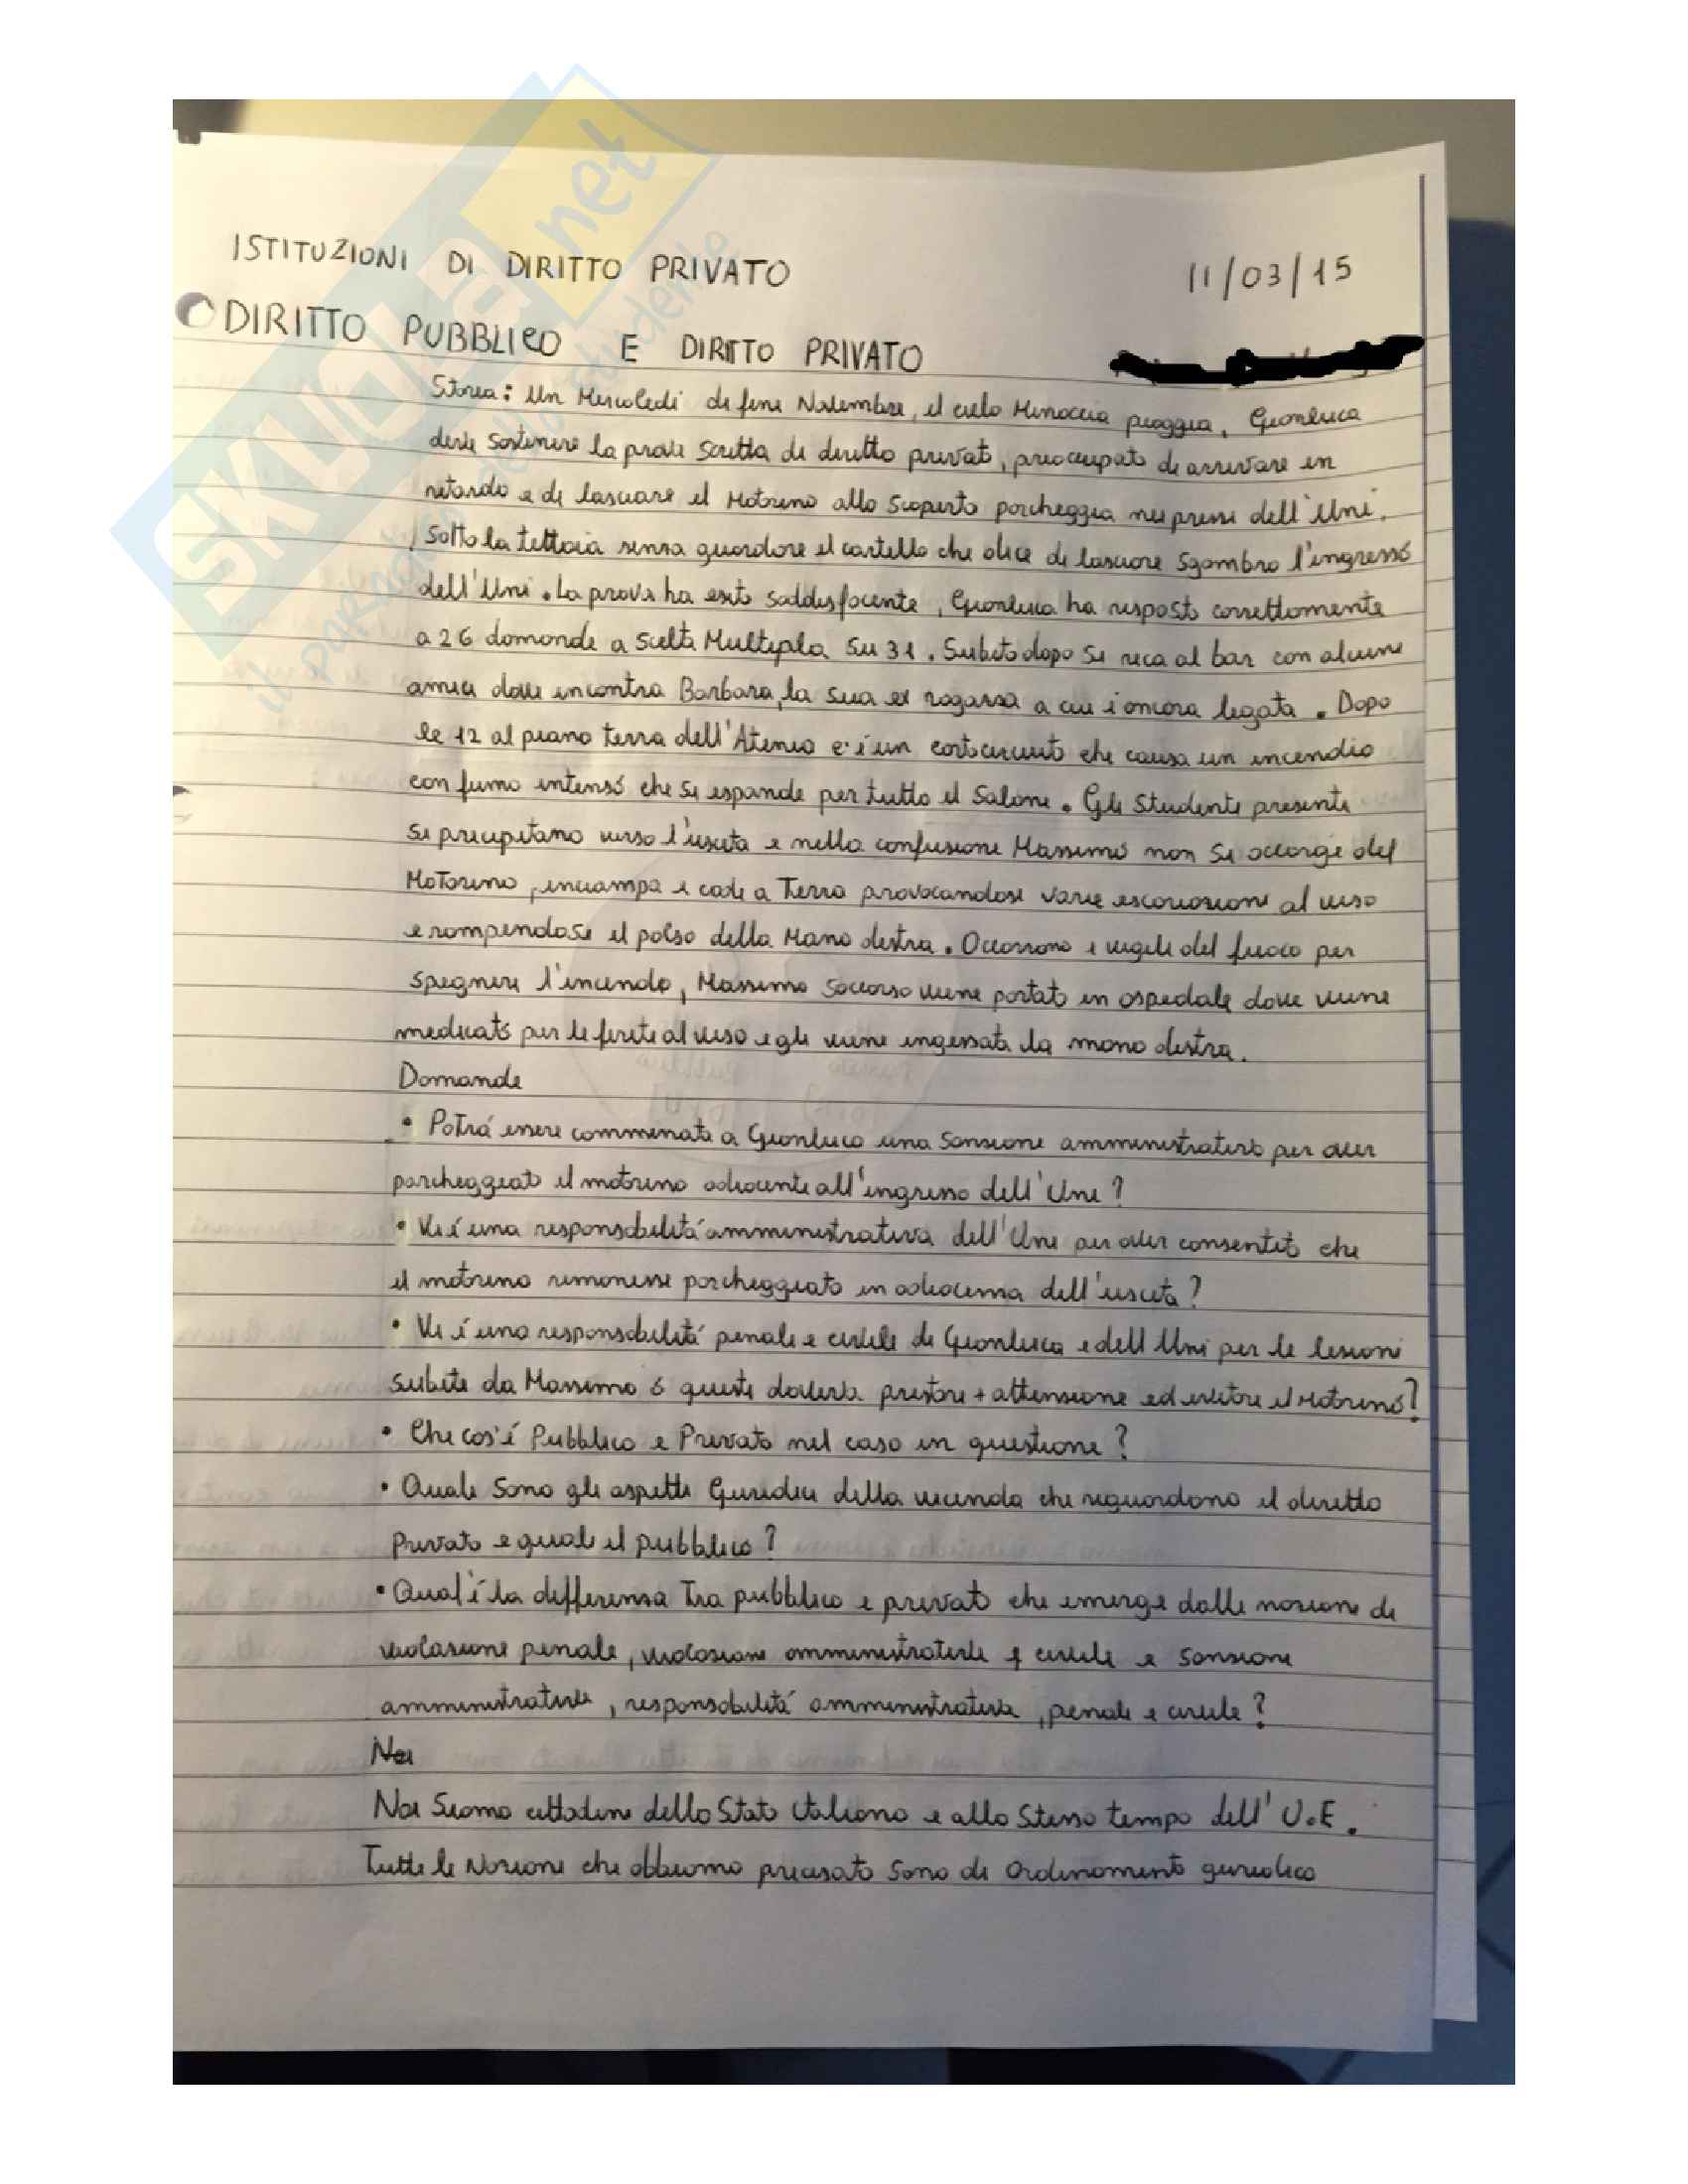 ISTITUZIONI DI DIRITTO PRIVATO 11/03/15
DIRITTO PUBBLICO E DIRITTO PRIVATO
Storia: Un Mercoledì di fine Novembre, il cielo Minaccia pioggia, Gianluca
deve sostenere la prova scritta di diritto privat, preoccupato di arrivare in
ritardo e di lasciare il Motorino allo scoperto parcheggia nei pressi dell'Uni.
Sotto la tettoia senza guardare il cartello che dice di lasciare sgombro l'ingresso
dell'Uni. La prova ha esito soddisfacente, Gianluca ha risposto correttamente
a 26 domande a scelta Multipla su 31. Subito dopo si reca al bar con alcuni
amici dove incontra Barbara, la sua ex ragazza a cui è ancora legata. Dopo
le 12 al piano terra dell'Ateneo c'è un cortocircuito che causa un incendio
con fumo intenso che si espande per tutto il Salone. Gli Studenti presenti
si precipitano verso l'uscita e nella confusione Massimo non si accorge del
Motorino, inciampa e cade a Terra provocandosi varie escoriazioni al viso
e rompendosi il polso della Mano destra. Occorrono i vigili del fuoco per
spegnere l'incendo, Massimo soccorso viene portato in ospedale dove viene
medicato per le ferite al viso e gli viene ingessata la mano destra.
Domande
• Potrà essere comminata a Gianluca una Sanzione amministrativa per aver
parcheggiato il motorino adiacente all'ingresso dell'Uni?
• Vi è una responsabilità amministrativa dell'Uni per aver consentito che
il motorino rimanesse parcheggiato in adiacenza dell'uscita?
• Vi è una responsabilità penale e civile di Gianluca e dell Uni per le lesioni
subite da Massimo o questi doveva prestare + attenzione ed evitare il Motorino?
• Che cos'è Pubblico e Privato nel caso in questione?
• Quali sono gli aspetti Giuridici della vicenda che riguardano il diritto
Privato e quali il pubblico?
• Qual'è la differenza Tra pubblico e privato che emerge dalle nozioni di
violazione penale, violazione amministrativa e civile e sanzione
amministrativa, responsabilità amministrativa, penale e civile?
Noi Siamo cittadini dello Stato Italiano e allo Stesso tempo dell'U.E.
Tutte le Nozioni che abbiamo precisato sono di Ordinamento giuridico
SKUOLA.net
il paradiso dello studente